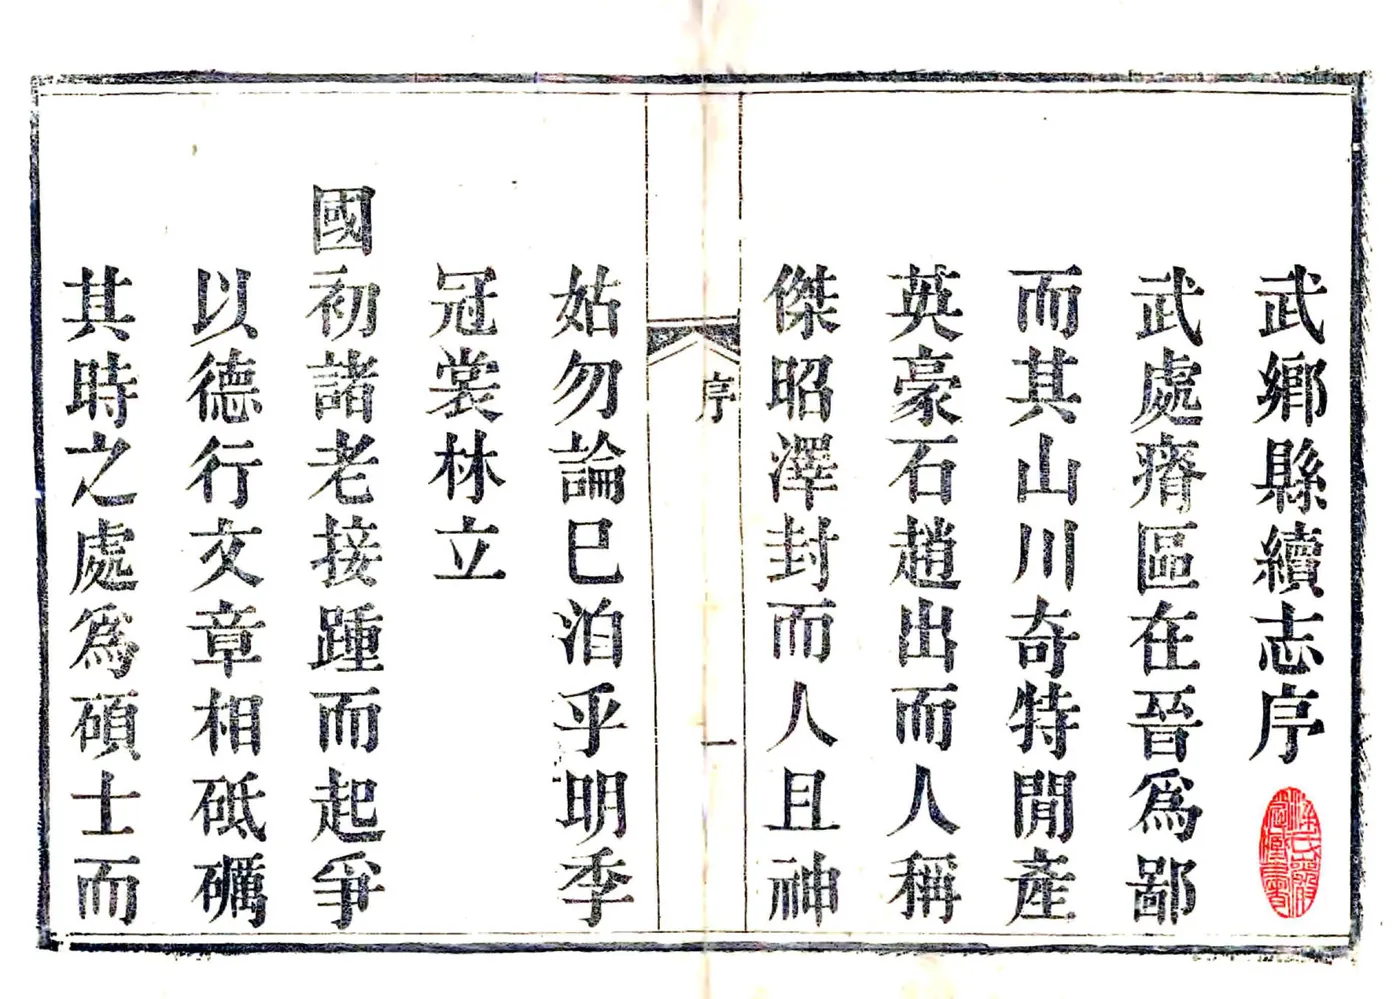 武鄉縣續志序
武處瘠區在晉爲鄙
而其山川奇特閒產
英豪石趙出而人稱
傑昭澤封而人且神
序
一
姑勿論巳洎乎明季
冠裳林立
國初諸老接踵而起爭
以德行文章相砥礪
其時之處爲碩士而